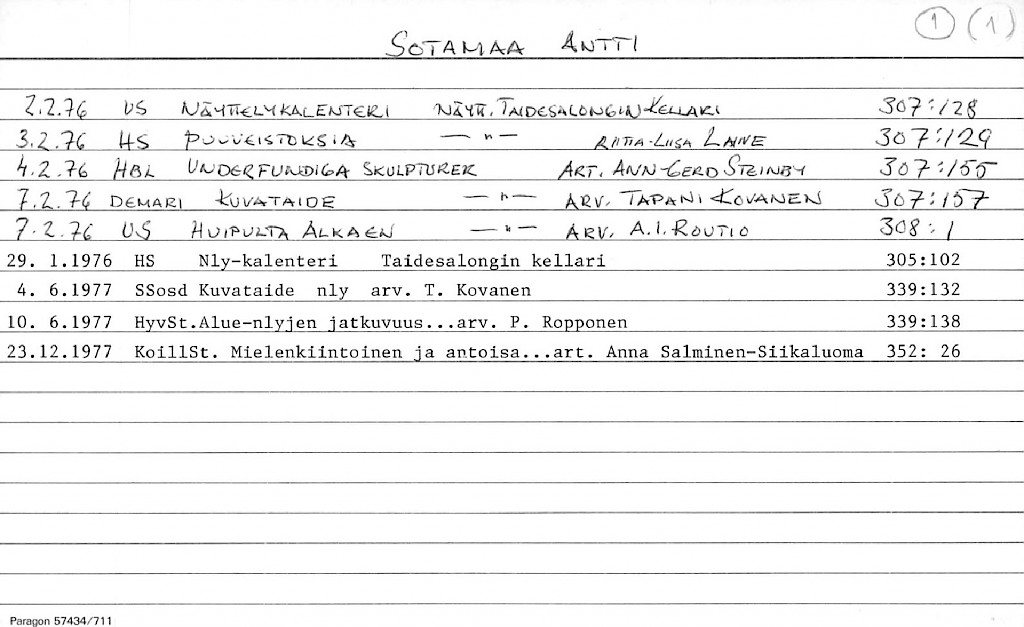 1 (1)
SOTAMAA ANTTI
2.2.76 US NÄYTTELYKALENTERI NÄYTT. TAIDESALONGIN KELLARI 307:128
3.2.76 HS PUUVEISTOKSIA — " — RIITTA-LIISA LAINE 307:129
4.2.76 HBL UNDERFUNDIGA SKULPTURER ART. ANN-GERD STEINBY 307:155
7.2.76 DEMARI KUVATAIDE — " — ARV. TAPANI KOVANEN 307:157
7.2.76 US HUIPULTA ALKAEN — " — ARV. A.I. ROUTIO 308:1
29. 1.1976 HS Nly-kalenteri Taidesalongin kellari 305:102
4. 6.1977 SSosd Kuvataide nly arv. T. Kovanen 339:132
10. 6.1977 HyvSt.Alue-nlyjen jatkuvuus...arv. P. Ropponen 339:138
23.12.1977 KoillSt. Mielenkiintoinen ja antoisa...art. Anna Salminen-Siikaluoma 352: 26
Paragon 57434/711